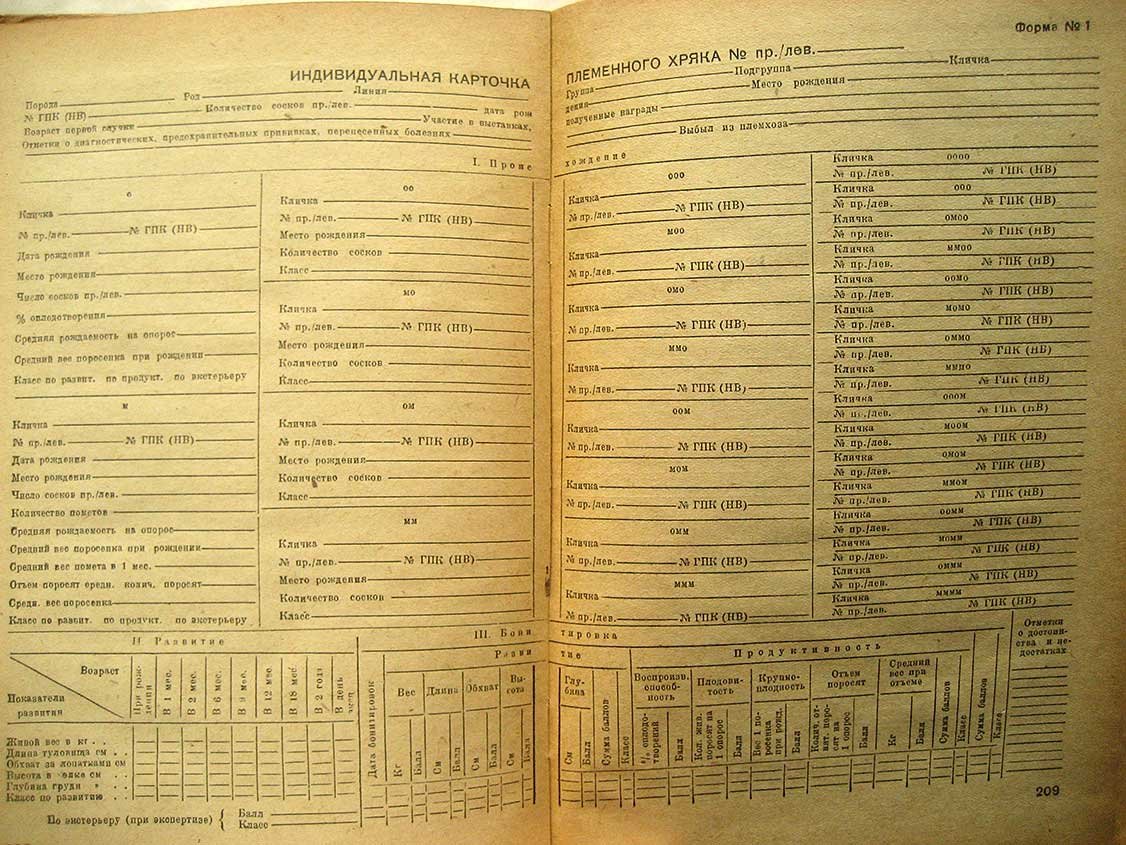 Форма № 1
ИНДИВИДУАЛЬНАЯ КАРТОЧКА ПЛЕМЕННОГО ХРЯКА № пр./лев.
Порода Род Линия Группа Подгруппа Кличка
№ ГПК (НВ) Количество сосков пр./лев. дата рождения Место рождения
Возраст первой случки Участие в выставках, полученные награды
Отметки о диагностических, предохранительных прививках, перенесенных болезнях Выбыл из племхоза
I. Происхождение
о
Кличка
№ пр./лев. № ГПК (НВ)
Дата рождения
Место рождения
Число сосков пр./лев.
% оплодотворения
Средняя рождаемость на опорос
Средний вес поросенка при рождении
Класс по развит. по продукт. по экстерьеру
м
Кличка
№ пр./лев. № ГПК (НВ)
Дата рождения
Место рождения
Число сосков пр./лев.
Количество пометов
Средняя рождаемость на опорос
Средний вес поросенка при рождении
Средний вес помета в 1 мес.
Отъем поросят средн. колич. поросят
Средн. вес поросенка
Класс по развит. по продукт. по экстерьеру
оо
Кличка
№ пр./лев. № ГПК (НВ)
Место рождения
Количество сосков
Класс
мо
Кличка
№ пр./лев. № ГПК (НВ)
Место рождения
Количество сосков
Класс
ом
Кличка
№ пр./лев. № ГПК (НВ)
Место рождения
Количество сосков
Класс
мм
Кличка
№ пр./лев. № ГПК (НВ)
Место рождения
Количество сосков
Класс
ооо
Кличка
№ пр./лев. № ГПК (НВ)
моо
Кличка
№ пр./лев. № ГПК (НВ)
омо
Кличка
№ пр./лев. № ГПК (НВ)
ммо
Кличка
№ пр./лев. № ГПК (НВ)
оом
Кличка
№ пр./лев. № ГПК (НВ)
мом
Кличка
№ пр./лев. № ГПК (НВ)
омм
Кличка
№ пр./лев. № ГПК (НВ)
ммм
Кличка
№ пр./лев. № ГПК (НВ)
Кличка оооо
№ пр./лев. № ГПК (НВ)
Кличка ооо
№ пр./лев. № ГПК (НВ)
Кличка омоо
№ пр./лев. № ГПК (НВ)
Кличка ммоо
№ пр./лев. № ГПК (НВ)
Кличка оомо
№ пр./лев. № ГПК (НВ)
Кличка момо
№ пр./лев. № ГПК (НВ)
Кличка оммо
№ пр./лев. № ГПК (НВ)
Кличка
№ пр./лев. № ГПК (НВ)
Кличка ооом
№ пр./лев. № ГПК (НВ)
Кличка моом
№ пр./лев. № ГПК (НВ)
Кличка омом
№ пр./лев. № ГПК (НВ)
Кличка ммом
№ пр./лев. № ГПК (НВ)
Кличка оомм
№ пр./лев. № ГПК (НВ)
Кличка момм
№ пр./лев. № ГПК (НВ)
Кличка оммм
№ пр./лев. № ГПК (НВ)
Кличка мммм
№ пр./лев. № ГПК (НВ)
II Развитие
Возраст
Показатели
развития
При рождении
В 1 мес.
В 2 мес.
В 6 мес.
В 9 мес.
В 12 мес.
В 18 мес
В 2 года
В день
Живой вес в кг . .
Длина туловища см . .
Обхват за лопатками см
Высота в холке см . .
Глубина груди " .
Класс по развитию . .
По экстерьеру (при экспертизе) { Балл
Класс
III. Бонитировка
Дата бонитировок
Развитие
Вес
Кг
Балл
Длина
См
Балл
Обхват
См
Балл
Высота
См
Балл
Глубина
См
Балл
Сумма баллов
Класс
Продуктивность
Воспроизв. способность
% оплодотворений
Балл
Плодовитость
Кол. жив. поросят на 1 опорос
Балл
Крупноплодность
Вес 1 поросенка при рожд.
Балл
Отъем поросят
Колич. отнят. поросят на 1 опорос
Балл
Средний вес при отъеме
Кг
Балл
Сумма баллов
Класс
Сумма баллов
Класс
Отметки
о достоин-
ства и не-
достатках
209